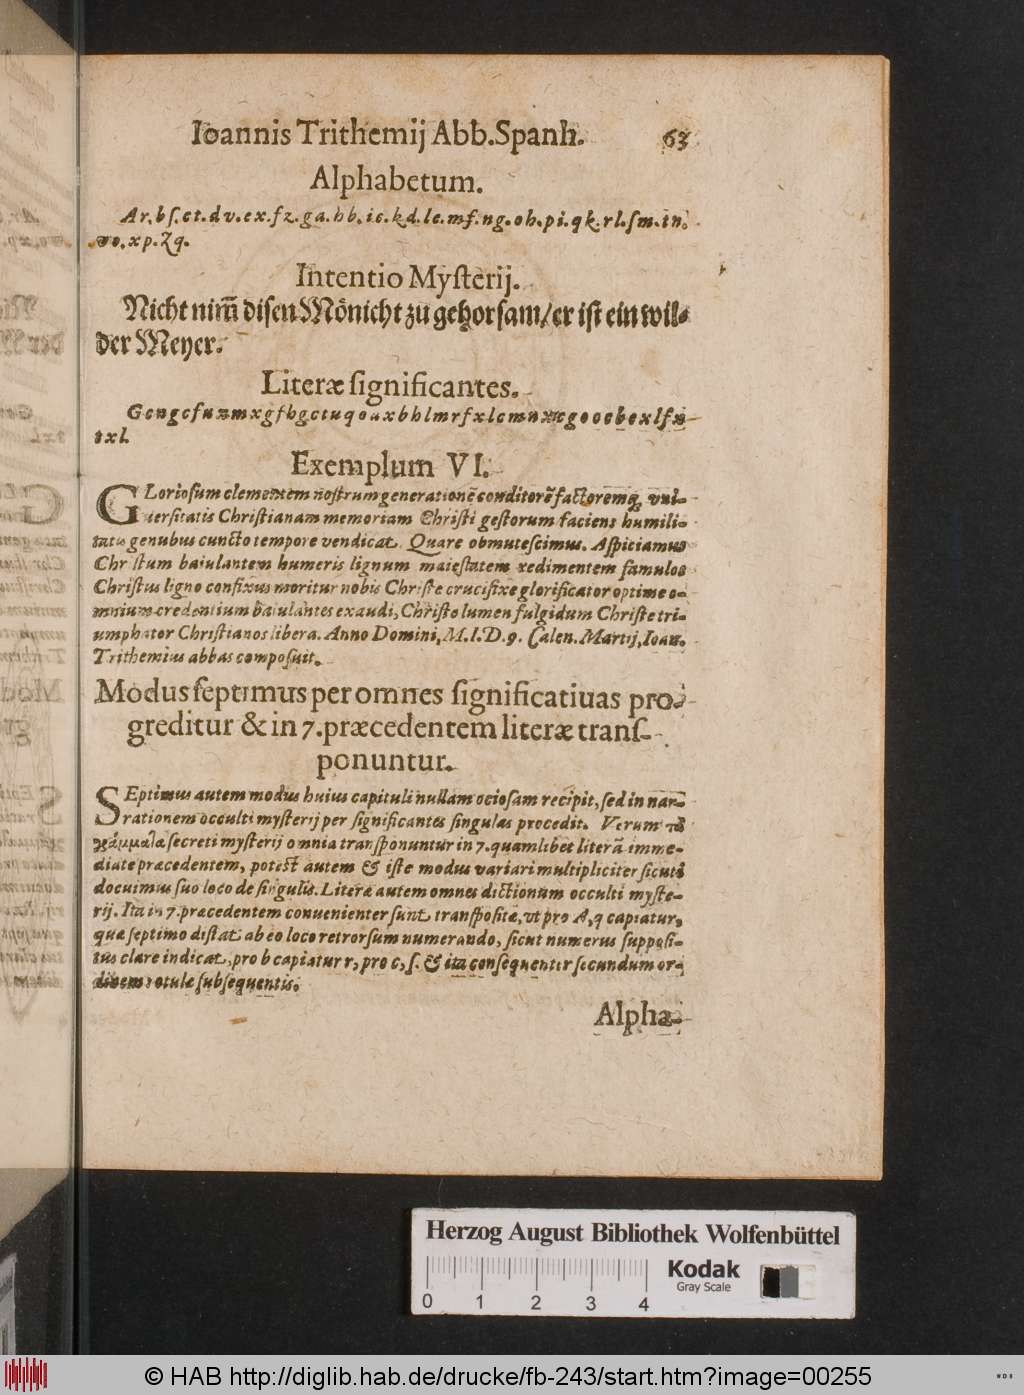 Ioannis Trithemij Abb. Spanh. 63
Alphabetum.
Ar. bſ. ct. dv. ex. fz. ga. hb. ic. kd. le. mf. ng. oh. pi. qk. rl. ſm. tn.
vo. xp. zq.
Intentio Myſterij.
Nicht nim̄ diſen Mönicht zu gehorſam/ er iſt ein wil-
der Meyer.
Literæ ſignificantes.
txl.
Exemplum VI.
GLorioſum clementem noſtrum generationẽ conditorẽ factoremq; vni-
uerſitatis Chriſtianam memoriam Chriſti geſtorum faciens humili-
tatis genubus cuncto tempore vendicat. Quare obmuteſcimus. Aſpiciamus
Chriſtum baiulantem humeris lignum maieſtatem redimentem famulos
Chriſtus ligno confixus moritur nobis Chriſte crucifixe glorificator optime o-
mnium credentium baiulantes exaudi, Chriſte lumen fulgidum Chriſte tri-
umphator Chriſtianos libera. Anno Domini, M.I.D.9. Calen. Martij, Ioan.
Trithemius abbas compoſuit.
Modus ſeptimus per omnes ſignificatiuas pro-
greditur & in 7. præcedentem literæ tranſ-
ponuntur.
SEptimus autem modus huius capituli nullam ocioſam recipit, ſed in nar-
rationem occulti myſterij per ſignificantes ſingulas procedit. Verum τὰ
γράμματα ſecreti myſterij omnia tranſponuntur in 7. quamlibet literã imme-
diate præcedentem, poteſt autem & iſte modus variari multipliciter ſicuti
docuimus ſuo loco de ſingulis. Literæ autem omnes dictionum occulti myſte-
rij. Ita in 7. præcedentem conuenienter ſunt tranſpoſitæ, vt pro A, q capiatur,
quæ ſeptimo diſtat ab eo loco retrorſum numerando, ſicut numerus ſuppoſi-
tus clare indicat, pro b capiatur r, pro c, ſ. & ita conſequenter ſecundum or-
dinem rotulæ ſubſequentis.
Alpha-
Herzog August Bibliothek Wolfenbüttel
0 1 2 3 4
Kodak
Gray Scale
© HAB http://diglib.hab.de/drucke/fb-243/start.htm?image=00255